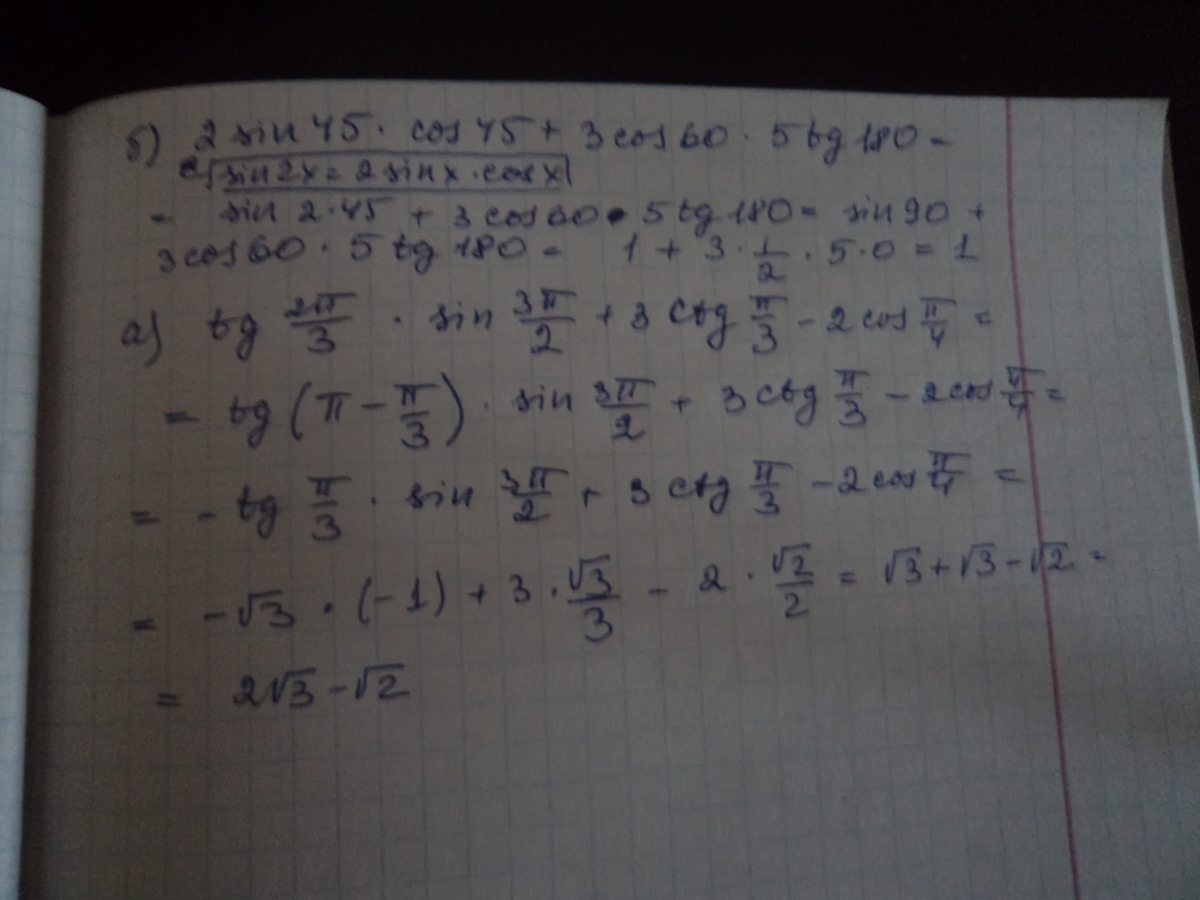 б) 2 sin 45 · cos 45 + 3 cos 60 · 5 tg 180 =
sin 2x = 2 sin x · cos x
= sin 2·45 + 3 cos 60 · 5 tg 180 = sin 90 +
3 cos 60 · 5 tg 180 = 1 + 3 · 1/2 · 5 · 0 = 1
а) tg 2π/3 · sin 3π/2 + 3 ctg π/3 − 2 cos π/4 =
= tg (π − π/3) · sin 3π/2 + 3 ctg π/3 − 2 cos π/4 =
= − tg π/3 · sin 3π/2 + 3 ctg π/3 − 2 cos π/4 =
= −√3 · (−1) + 3 · √3/3 − 2 · √2/2 = √3 + √3 − √2 =
= 2√3 − √2